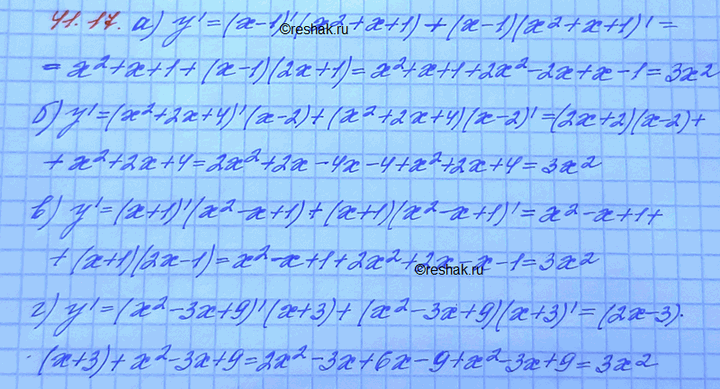 41.17. а) y' = (x-1)'(x²+x+1) + (x-1)(x²+x+1)' =
©reshak.ru
= x²+x+1 + (x-1)(2x+1) = x²+x+1+2x²-2x+x-1 = 3x²
б) y' = (x²+2x+4)'(x-2) + (x²+2x+4)(x-2)' = (2x+2)(x-2)+
+ x²+2x+4 = 2x²+2x-4x-4+x²+2x+4 = 3x²
в) y' = (x+1)'(x²-x+1) + (x+1)(x²-x+1)' = x²-x+1+
+ (x+1)(2x-1) = x²-x+1+2x²+2x-x-1 = 3x²
©reshak.ru
г) y' = (x²-3x+9)'(x+3) + (x²-3x+9)(x+3)' = (2x-3)·
·(x+3) + x²-3x+9 = 2x²-3x+6x-9+x²-3x+9 = 3x²